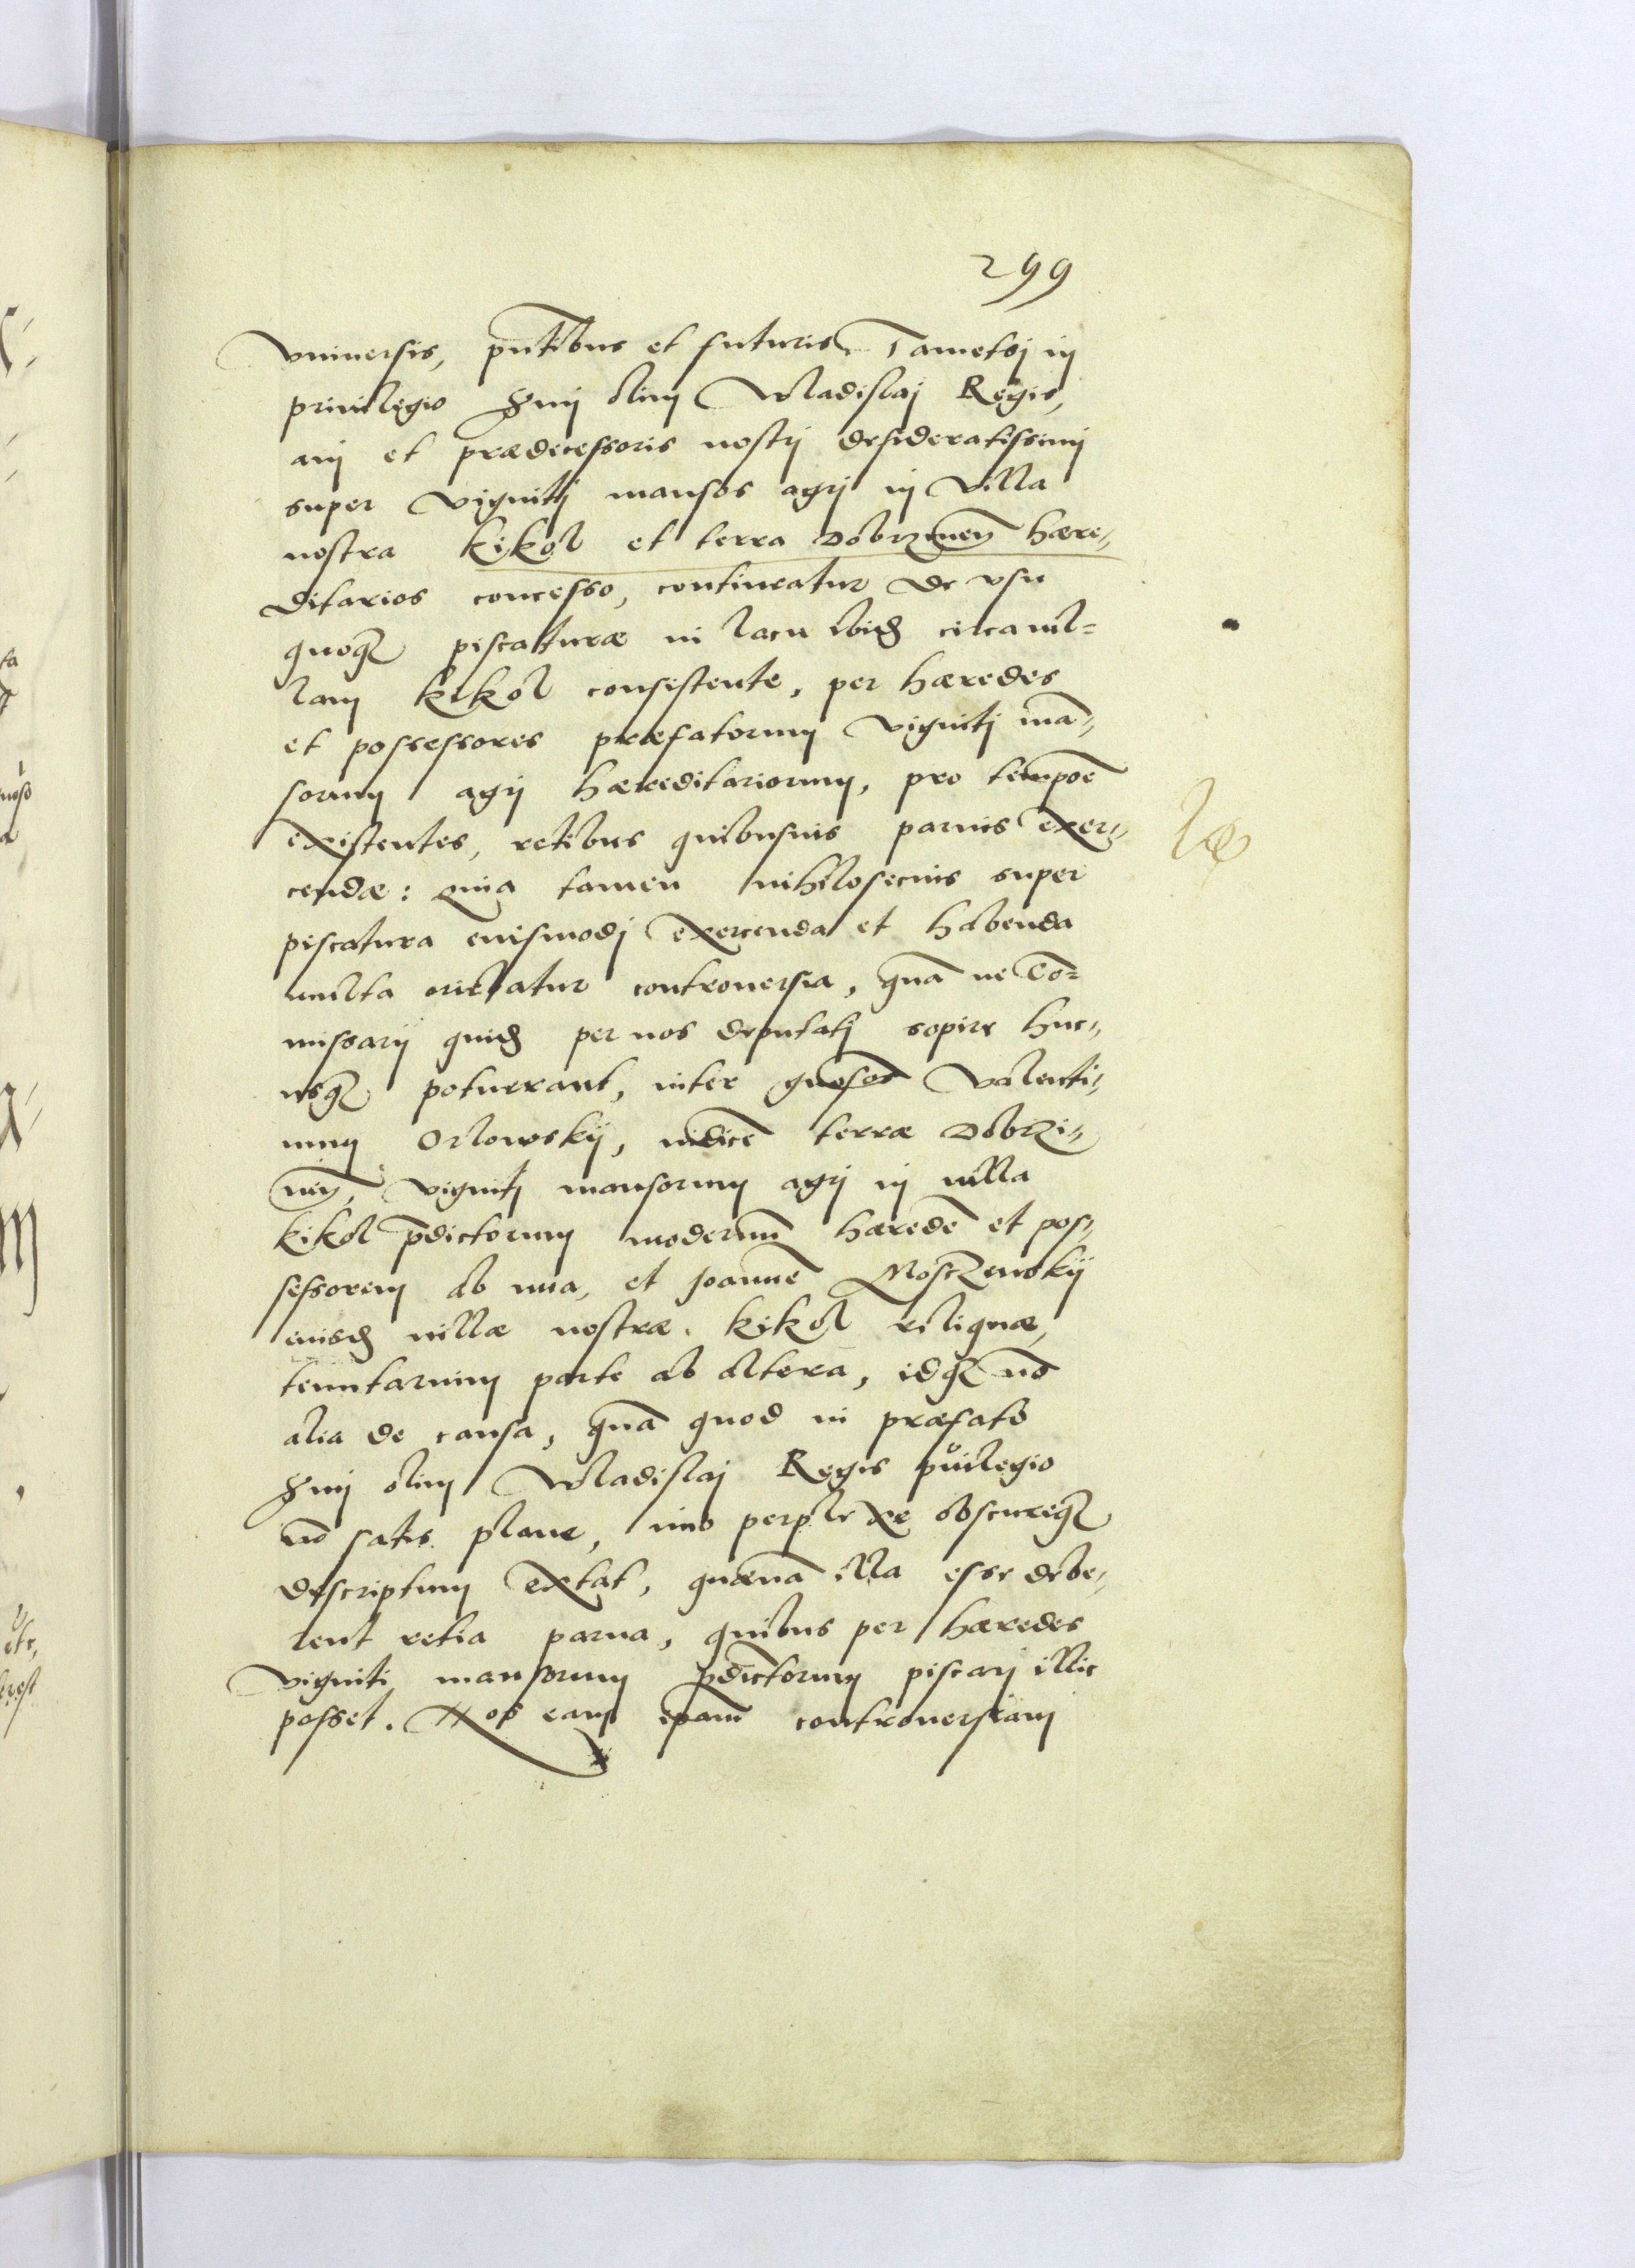 299
vniuersis, pntibus et futuris. Tametsj in
priuilegio Ssmi olim Wladislaj Regis,
aui et prædecessoris nostrj desideratissimj
super vigintj mansos agrj in villa
nostra Kikol et terra Dobrzinen hære„
ditarios concesso, contineatur de vsu
quoq3 piscaturæ in lacu ibid circa uil=
lam Kikol consistente, per hæredes
et possessores præfatorum vigintj mā„
sorum agrj hæreditariorum, pro tempore
existentes, retibus quibusuis paruis exer„
cendæ: quia tamen nihilosecius super
piscatura euismodj exercenda et habenda
multa oriebatur controuersia, quā ne Co=
missarij quid per nos deputatj sopire huc„
usq3 potuerant, inter gnosos Valenti„
num Orlowskij, iudicē terræ Dobrzi„
nen, vigintj mansorum agrj in uilla
Kikol pdictorum modernū hæredē et pos„
sessorem ab una, et Joannē Mosczenskij
eiusd uillæ nostræ Kikol reliquæ,
tenutarium parte ab altera, idq3 nō
alia de causa, quā quod in præfato
Ssmi olim Wladislaj Regis puilegio
nō satis plane, imo perplexe obscureq3
descriptum extat, quænā illa esse debe„
rent retia parua, quibus per hæredes
viginti mansorum pdictorum piscarj illic
posset. Nos eam ipsam controuersiam